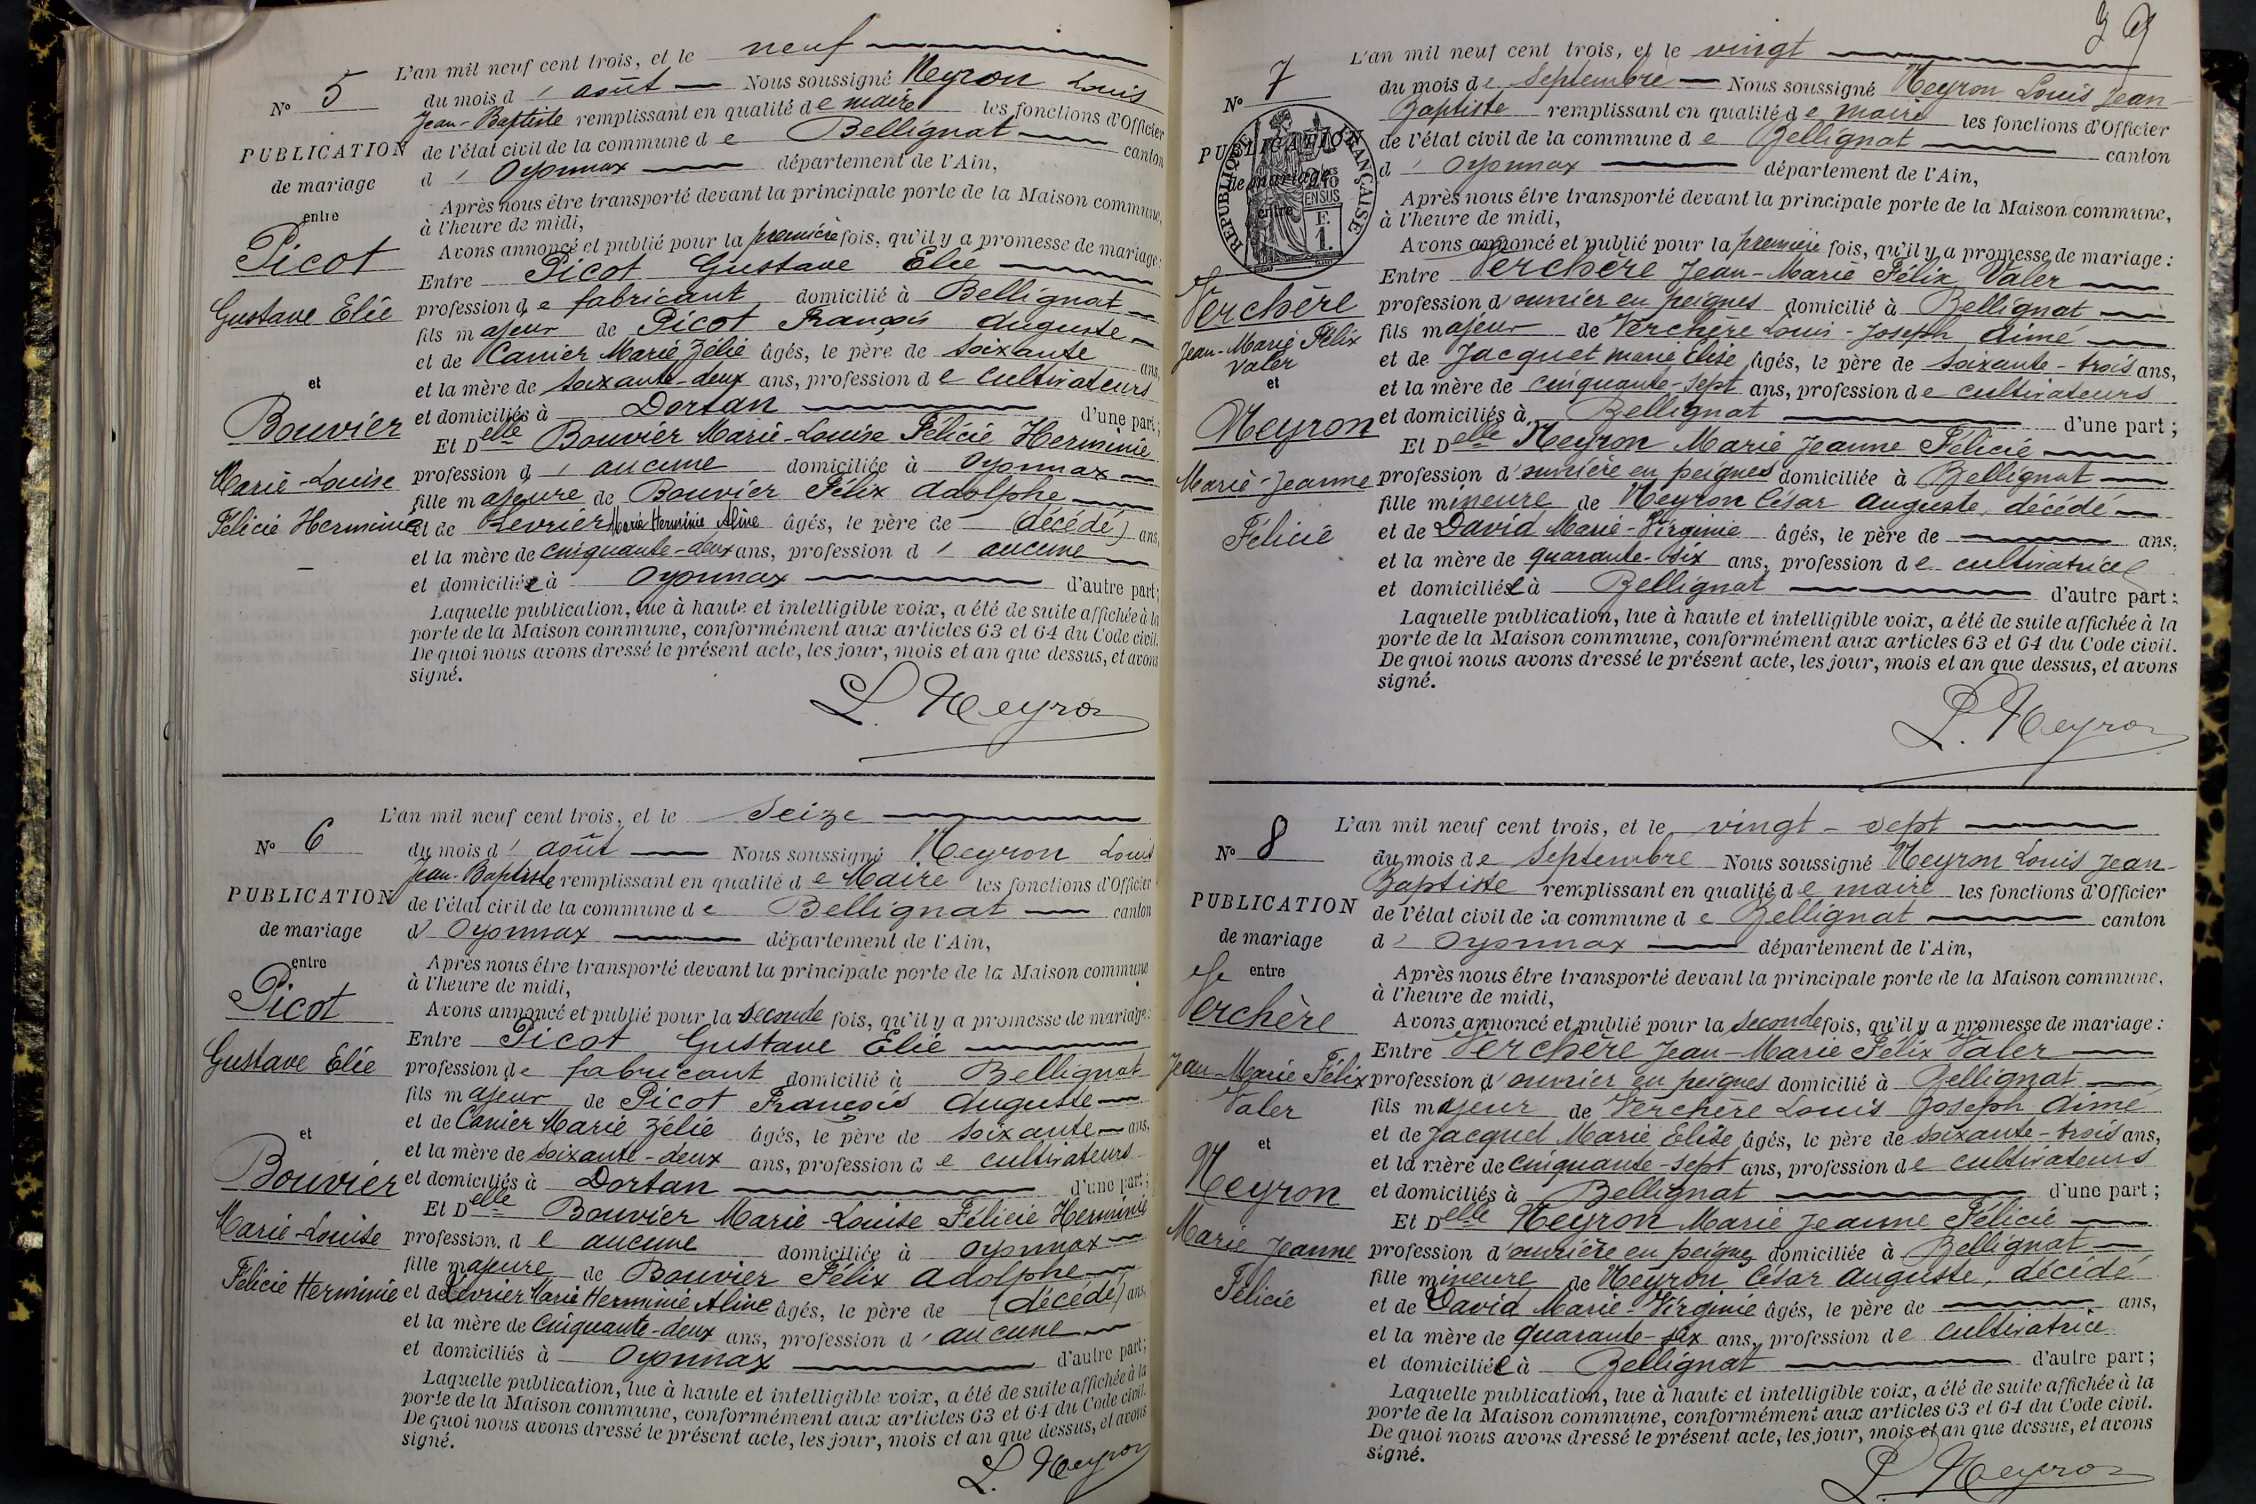 N° 5
PUBLICATION
de mariage
entre
Picot
Gustave Elie
et
Bouvier
Marie-Louise
Félicie Herminie
L'an mil neuf cent trois, et le neuf
du mois d' août Nous soussigné Neyron Louis
Jean-Baptiste remplissant en qualité de maire les fonctions d'Officier
de l'état civil de la commune de Bellignat canton
d' Oyonnax département de l'Ain,
Après nous être transporté devant la principale porte de la Maison commune,
à l'heure de midi,
Avons annoncé et publié pour la première fois, qu'il y a promesse de mariage:
Entre Picot Gustave Elie
profession de fabricant domicilié à Bellignat
fils majeur de Picot François Auguste
et de Canier Marie Zélie âgés, le père de soixante ans,
et la mère de soixante-deux ans, profession de cultivateurs
et domiciliés à Dortan d'une part;
Et Delle Bouvier Marie-Louise Félicie Herminie
profession d' aucune domiciliée à Oyonnax
fille majeure de Bouvier Félix Adolphe
et de Levrier Marie Herminie Aline âgés, le père de (décédé) ans,
et la mère de cinquante-deux ans, profession d' aucune
et domiciliée à Oyonnax d'autre part;
Laquelle publication, lue à haute et intelligible voix, a été de suite affichée à la
porte de la Maison commune, conformément aux articles 63 et 64 du Code civil.
De quoi nous avons dressé le présent acte, les jour, mois et an que dessus, et avons
signé.
L. Neyron
N° 6
PUBLICATION
de mariage
entre
Picot
Gustave Elie
et
Bouvier
Marie-Louise
Félicie Herminie
L'an mil neuf cent trois, et le seize
du mois d' août Nous soussigné Neyron Louis
Jean-Baptiste remplissant en qualité de Maire les fonctions d'Officier
de l'état civil de la commune de Bellignat canton
d' Oyonnax département de l'Ain,
Après nous être transporté devant la principale porte de la Maison commune
à l'heure de midi,
Avons annoncé et publié pour la seconde fois, qu'il y a promesse de mariage:
Entre Picot Gustave Elie
profession de fabricant domicilié à Bellignat
fils majeur de Picot François Auguste
et de Canier Marie Zélie âgés, le père de soixante ans,
et la mère de soixante-deux ans, profession de cultivateurs
et domiciliés à Dortan d'une part;
Et Delle Bouvier Marie-Louise Félicie Herminie
profession de aucune domiciliée à Oyonnax
fille majeure de Bouvier Félix Adolphe
et de Levrier Marie Herminie Aline âgés, le père de (décédé) ans,
et la mère de cinquante-deux ans, profession d' aucune
et domiciliés à Oyonnax d'autre part;
Laquelle publication, lue à haute et intelligible voix, a été de suite affichée à la
porte de la Maison commune, conformément aux articles 63 et 64 du Code civil.
De quoi nous avons dressé le présent acte, les jour, mois et an que dessus, et avons
signé.
L. Neyron
N° 7
PUBLICATION
de mariage
entre
RÉPUBLIQUE FRANÇAISE
EN SUS
F.
1.
Verchère
Jean-Marie Félix
Valer
et
Neyron
Marie-Jeanne
Félicie
L'an mil neuf cent trois, et le vingt
du mois de Septembre Nous soussigné Neyron Louis Jean-
Baptiste remplissant en qualité de maire les fonctions d'Officier
de l'état civil de la commune de Bellignat canton
d' Oyonnax département de l'Ain,
Après nous être transporté devant la principale porte de la Maison commune,
à l'heure de midi,
Avons annoncé et publié pour la première fois, qu'il y a promesse de mariage:
Entre Verchère Jean-Marie Félix Valer
profession d'ouvrier en peignes domicilié à Bellignat
fils majeur de Verchère Louis-Joseph Aimé
et de Jacquet Marie Elise âgés, le père de soixante-trois ans,
et la mère de cinquante-sept ans, profession de cultivateurs
et domiciliés à Bellignat d'une part;
Et Delle Neyron Marie Jeanne Félicie
profession d'ouvrière en peignes domiciliée à Bellignat
fille mineure de Neyron César Auguste, décédé
et de David Marie-Virginie âgés, le père de ans,
et la mère de quarante-six ans, profession de cultivatrice
et domiciliée à Bellignat d'autre part:
Laquelle publication, lue à haute et intelligible voix, a été de suite affichée à la
porte de la Maison commune, conformément aux articles 63 et 64 du Code civil.
De quoi nous avons dressé le présent acte, les jour, mois et an que dessus, et avons
signé.
L. Neyron
N° 8
PUBLICATION
de mariage
entre
Verchère
Jean-Marie Félix
Valer
et
Neyron
Marie Jeanne
Félicie
L'an mil neuf cent trois, et le vingt-sept
du mois de Septembre Nous soussigné Neyron Louis Jean-
Baptiste remplissant en qualité de maire les fonctions d'Officier
de l'état civil de la commune de Bellignat canton
d' Oyonnax département de l'Ain,
Après nous être transporté devant la principale porte de la Maison commune,
à l'heure de midi,
Avons annoncé et publié pour la seconde fois, qu'il y a promesse de mariage:
Entre Verchère Jean-Marie Félix Valer
profession d'ouvrier en peignes domicilié à Bellignat
fils majeur de Verchère Louis Joseph Aimé
et de Jacquet Marie Elise âgés, le père de soixante-trois ans,
et la mère de cinquante-sept ans, profession de cultivateurs
et domiciliés à Bellignat d'une part;
Et Delle Neyron Marie Jeanne Félicie
profession d'ouvrière en peignes domiciliée à Bellignat
fille mineure de Neyron César Auguste, décédé
et de David Marie-Virginie âgés, le père de ans,
et la mère de quarante-six ans, profession de cultivatrice
et domiciliée à Bellignat d'autre part;
Laquelle publication, lue à haute et intelligible voix, a été de suite affichée à la
porte de la Maison commune, conformément aux articles 63 et 64 du Code civil.
De quoi nous avons dressé le présent acte, les jour, mois et an que dessus, et avons
signé.
L. Neyron